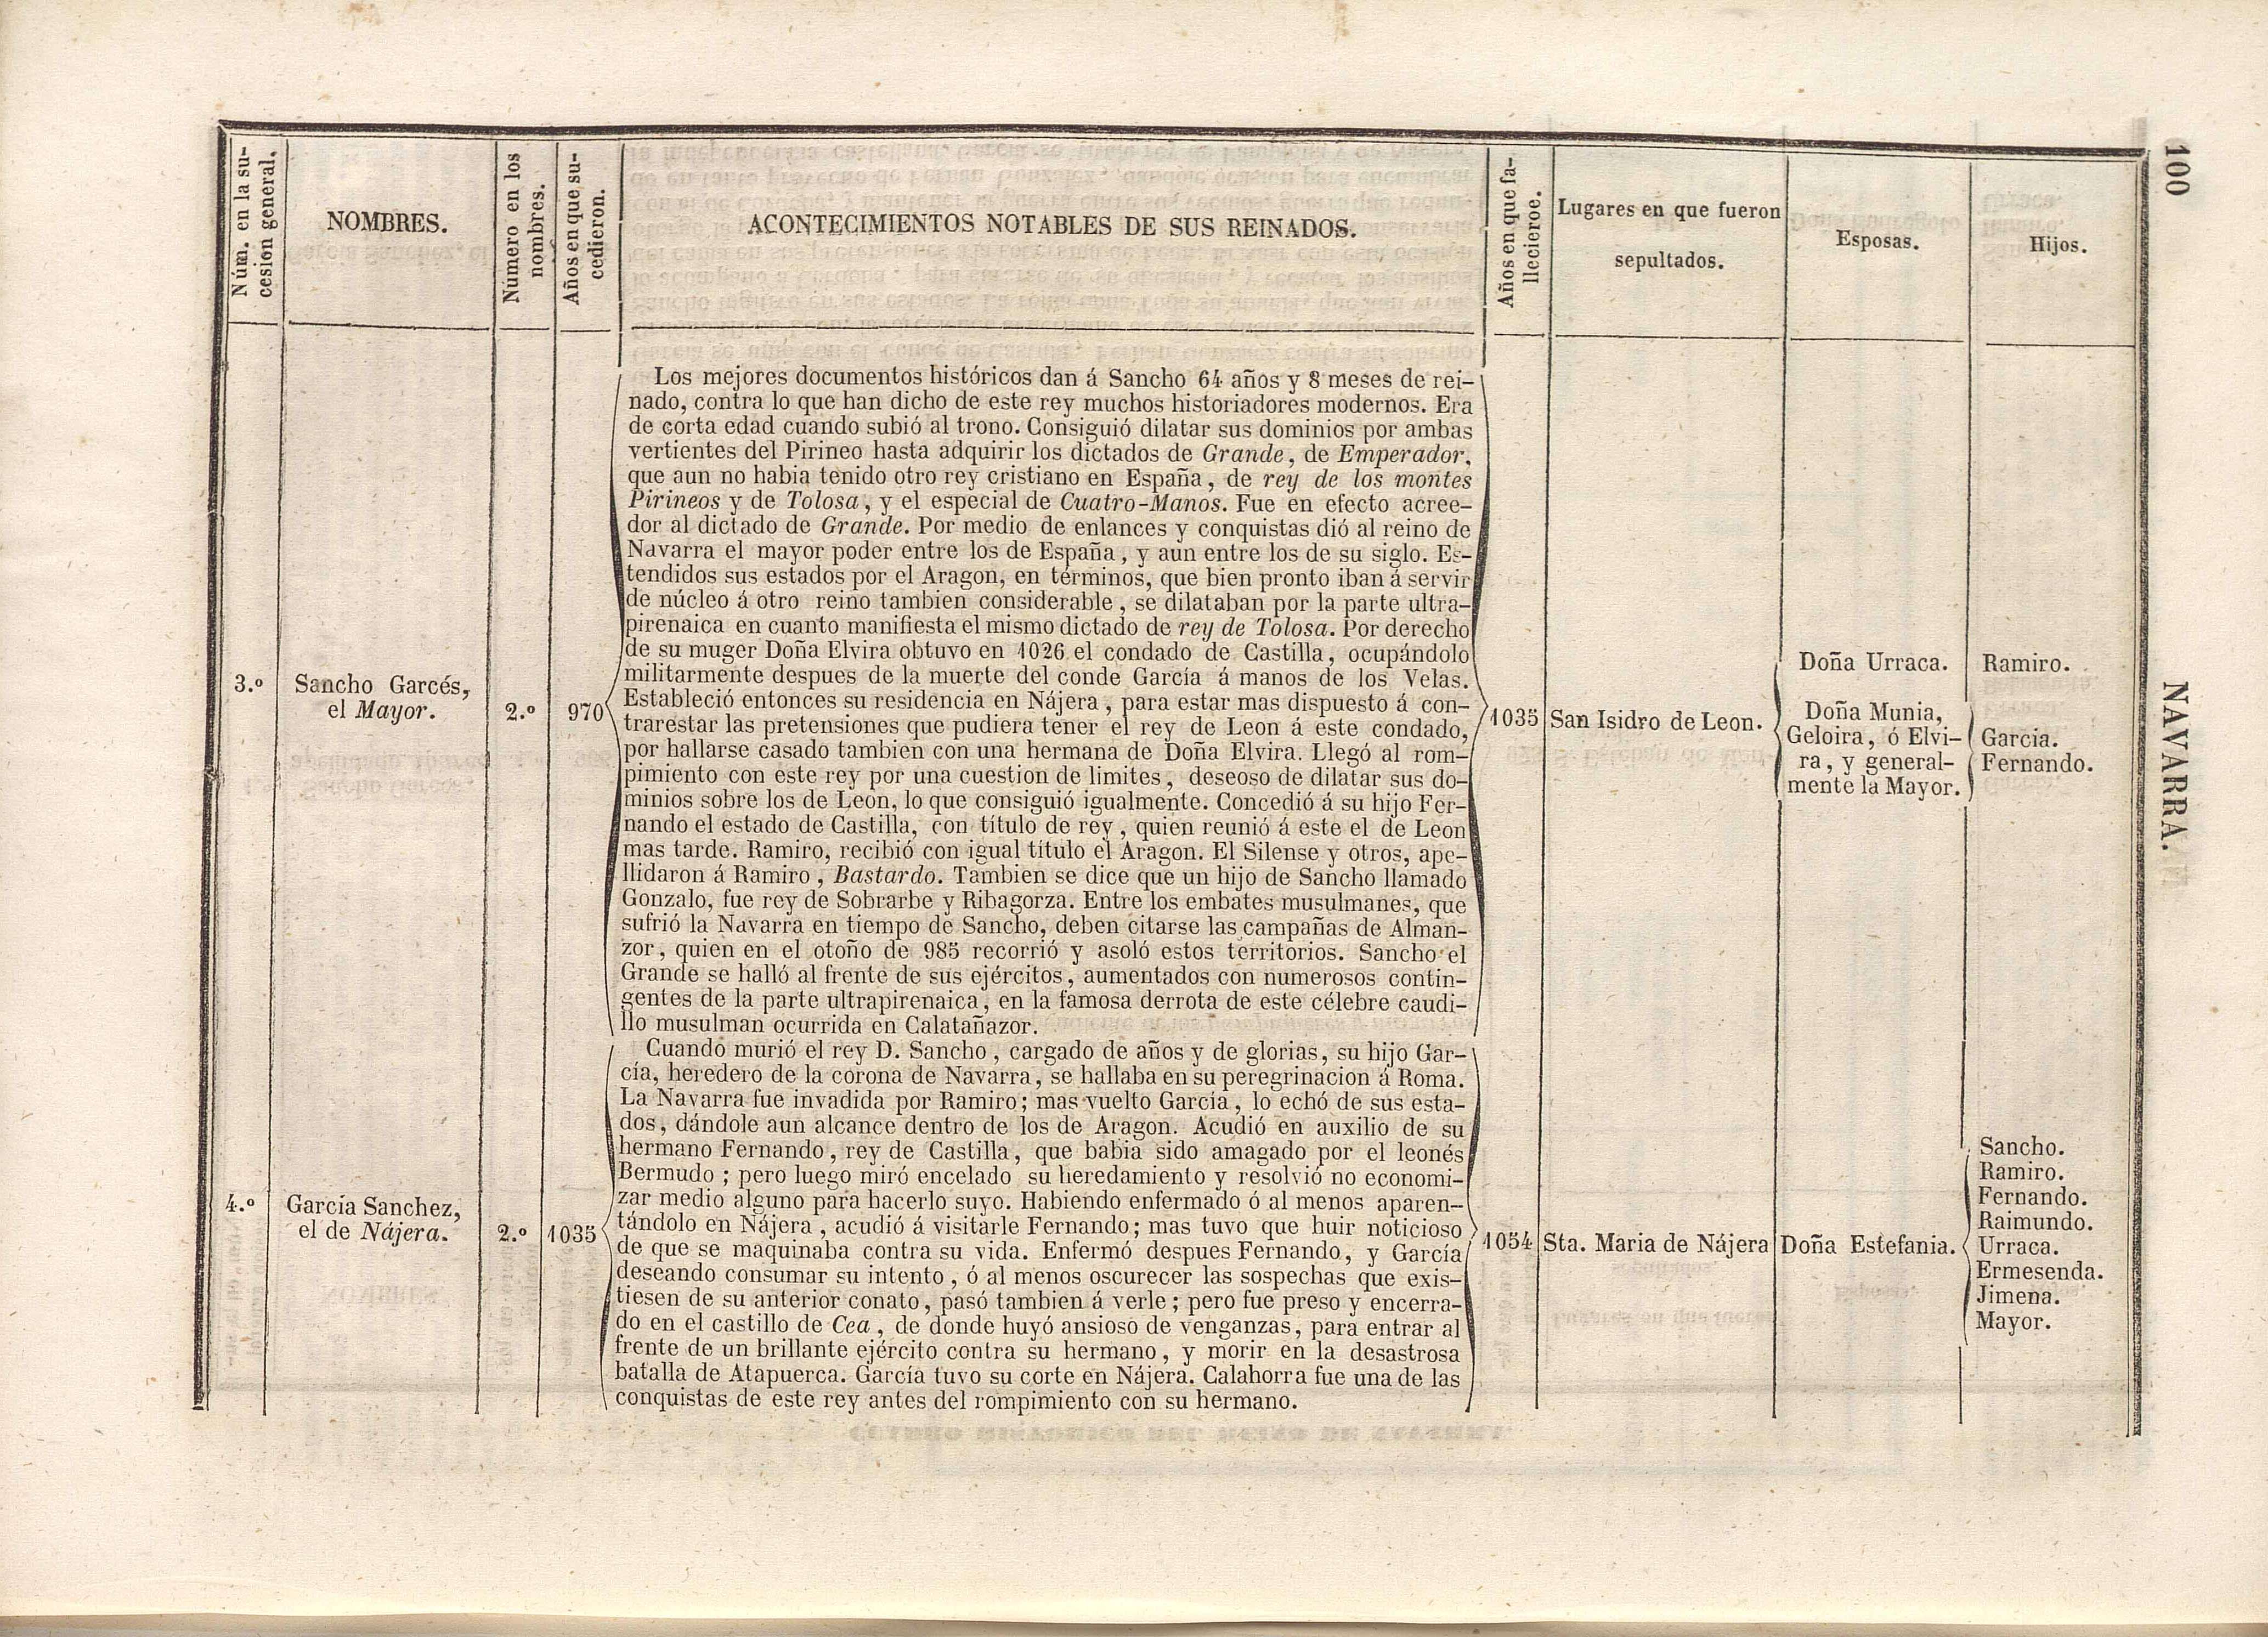 100
NAVARRA.
Núm. en la su-
cesion general.
NOMBRES.
Número en los
nombres.
Años en que su-
cedieron.
ACONTECIMIENTOS NOTABLES DE SUS REINADOS.
Años en que fa-
llecieroe.
Lugares en que fueron
sepultados.
Esposas.
Hijos.
3.º
Sancho Garcés,
el Mayor.
2.º
970
Los mejores documentos históricos dan á Sancho 64 años y 8 meses de rei-
nado, contra lo que han dicho de este rey muchos historiadores modernos. Era
de corta edad cuando subió al trono. Consiguió dilatar sus dominios por ambas
vertientes del Pirineo hasta adquirir los dictados de Grande, de Emperador,
que aun no habia tenido otro rey cristiano en España, de rey de los montes
Pirineos y de Tolosa, y el especial de Cuatro-Manos. Fue en efecto acree-
dor al dictado de Grande. Por medio de enlances y conquistas dió al reino de
Navarra el mayor poder entre los de España, y aun entre los de su siglo. Es-
tendidos sus estados por el Aragon, en términos, que bien pronto iban á servir
de núcleo á otro reino tambien considerable, se dilataban por la parte ultra-
pirenaica en cuanto manifiesta el mismo dictado de rey de Tolosa. Por derecho
de su muger Doña Elvira obtuvo en 1026 el condado de Castilla, ocupándolo
militarmente despues de la muerte del conde García á manos de los Velas.
Estableció entonces su residencia en Nájera, para estar mas dispuesto á con-
trarestar las pretensiones que pudiera tener el rey de Leon á este condado,
por hallarse casado tambien con una hermana de Doña Elvira. Llegó al rom-
pimiento con este rey por una cuestion de limites, deseoso de dilatar sus do-
minios sobre los de Leon, lo que consiguió igualmente. Concedió á su hijo Fer-
nando el estado de Castilla, con título de rey, quien reunió á este el de Leon
mas tarde. Ramiro, recibió con igual título el Aragon. El Silense y otros, ape-
llidaron á Ramiro, Bastardo. Tambien se dice que un hijo de Sancho llamado
Gonzalo, fue rey de Sobrarbe y Ribagorza. Entre los embates musulmanes, que
sufrió la Navarra en tiempo de Sancho, deben citarse las campañas de Alman-
zor, quien en el otoño de 985 recorrió y asoló estos territorios. Sancho el
Grande se halló al frente de sus ejércitos, aumentados con numerosos contin-
gentes de la parte ultrapirenaica, en la famosa derrota de este célebre caudi-
llo musulman ocurrida en Calatañazor.
1035
San Isidro de Leon.
Doña Urraca.
Doña Munia,
Geloira, ó Elvi-
ra, y general-
mente la Mayor.
Ramiro.
Garcia.
Fernando.
4.º
García Sanchez,
el de Nájera.
2.º
1035
Cuando murió el rey D. Sancho, cargado de años y de glorias, su hijo Gar-
cía, heredero de la corona de Navarra, se hallaba en su peregrinacion á Roma.
La Navarra fue invadida por Ramiro; mas vuelto García, lo echó de sus esta-
dos, dándole aun alcance dentro de los de Aragon. Acudió en auxilio de su
hermano Fernando, rey de Castilla, que babia sido amagado por el leonés
Bermudo; pero luego miró encelado su heredamiento y resolvió no economi-
zar medio alguno para hacerlo suyo. Habiendo enfermado ó al menos aparen-
tándolo en Nájera, acudió á visitarle Fernando; mas tuvo que huir noticioso
de que se maquinaba contra su vida. Enfermó despues Fernando, y García
deseando consumar su intento, ó al menos oscurecer las sospechas que exis-
tiesen de su anterior conato, pasó tambien á verle; pero fue preso y encerra-
do en el castillo de Cea, de donde huyó ansioso de venganzas, para entrar al
frente de un brillante ejército contra su hermano, y morir en la desastrosa
batalla de Atapuerca. García tuvo su corte en Nájera. Calahorra fue una de las
conquistas de este rey antes del rompimiento con su hermano.
1054
Sta. Maria de Nájera
Doña Estefania.
Sancho.
Ramiro.
Fernando.
Raimundo.
Urraca.
Ermesenda.
Jimena.
Mayor.